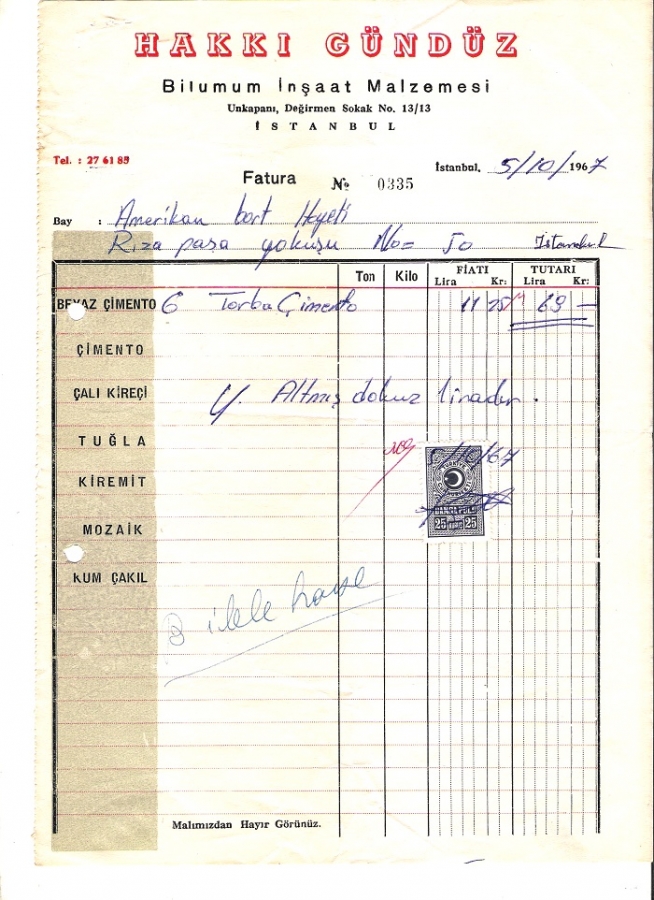 HAKKI GÜNDÜZ
Bilumum İnşaat Malzemesi
Unkapanı, Değirmen Sokak No. 13/13
İSTANBUL
Tel. : 27 61 89
Fatura № 0335
İstanbul, 5/10/1967
Bay : Amerikan bort Heyeti
Rıza paşa yokuşu No= 50 İstanbul
Ton Kilo FİATI TUTARI
Lira Kr: Lira Kr:
BEYAZ ÇİMENTO 6 Torba Çimento 11 25 69 —
ÇİMENTO
ÇALI KİREÇİ
Y. Altmış dokuz liradır.
TUĞLA
5/10/67
KİREMİT
TÜRKİYE
25 25
MOZAİK
KUM ÇAKIL
Malımızdan Hayır Görünüz.